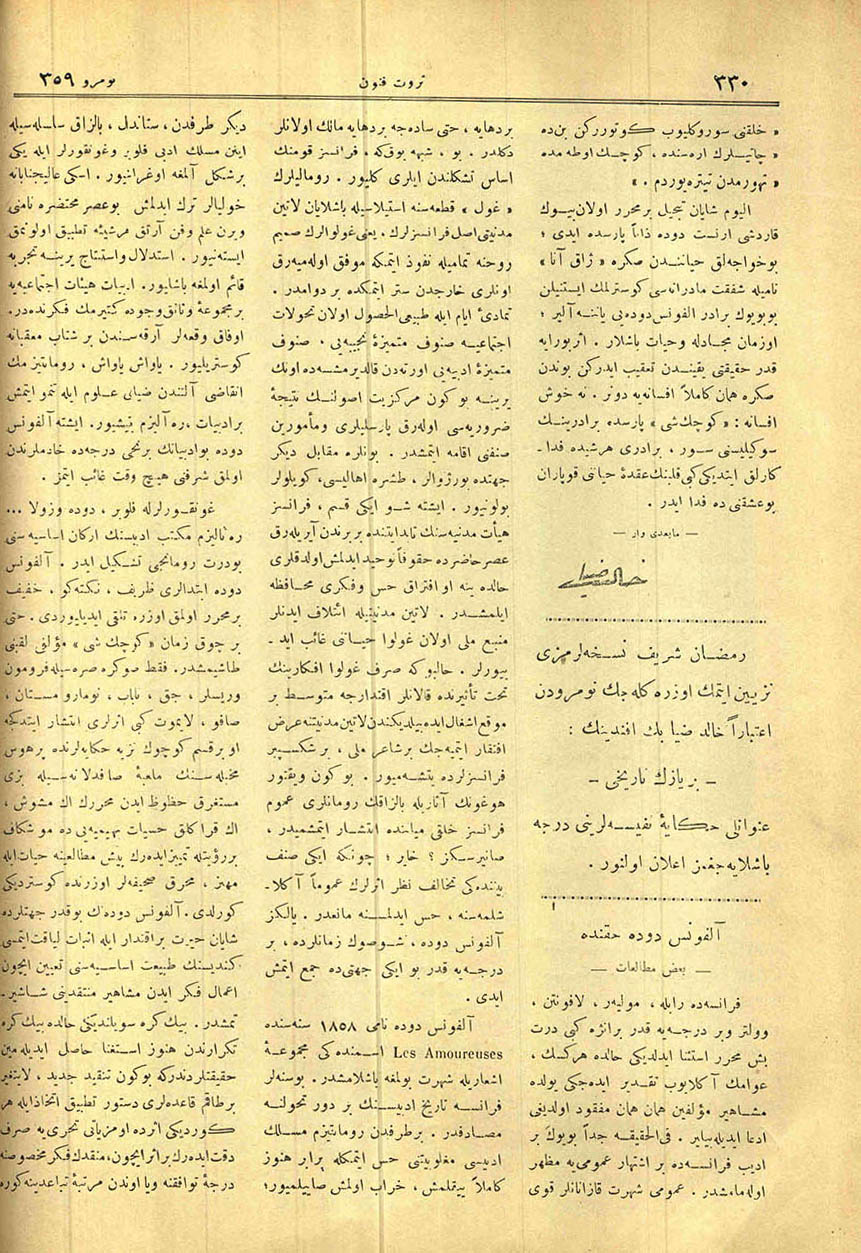 ٣٣٠
ثروت فنون
نومرو ٣٥٩
« خلقنی سوروکلیوب کوتوررکن بن ده
« چاتیلرك ارەسنده ، کوچك اوطه مده
« تهورمدن تیتره یوردم . »
الیوم شایان تبجیل بر محرر اولان بیوك
قارداشی ارنست دوده ذاتاً پارسده ایدی ؛
بو خواجه لق حیاتندن صکره « ژاق آنا »
نامیله شفقت مادرانه سی کوسترلمك ایستنیلن
بو بیوك برادر الفونس دوده یی یاننه آلیر ؛
اوزمان مجادلهٔ وحیات باشلار . اثر بورایه
قدر حقیقتی یقیندن تعقیب ایدرکن بوندن
صکره همان کاملاً افسانه یه دونر . نه خوش
افسانه : « کوچك شی » پارسده برادرینك
سوکیلیسنی سور ، برادری هر شیئده فدا ـ
کارلق ایتدیکی کبی قلبنك عقدهٔ حیاتنی قوپاران
بو عشقنی ده فدا ایدر .
— مابعدی وار —
خالد ضیا
رمضان شریف نسخه لرمزی
تزیین ایتمك اوزره کله جك نومرودن
اعتباراً خالد ضیا بك افندینك :
– بر یازك تاریخی –
عنوانلی حکایهٔ نفیسه لرینی درجه
باشلایه جغمز اعلان اولنور .
آلفونس دوده حقنده
— بعض مطالعات —
فرانسه ده رابله ، مولیه ر ، لافونتن ،
وولتر و بر درجه یه قدر برانژه کبی درت
بش محرر استثنا ایدلدیکی حالده هرکسك ،
عوامك آکلایوب تقدیر ایده جکی یولده
مشاهیر مؤلفین همان همان مفقود اولدیغی
ادعا ایدیله بیلیر . فی الحقیقه جداً بویوك بر
ادیب فرانسه ده بر اشتهار عمومی یه مظهر
اوله مامشدر . عمومی شهرت قازانانلر قوی
بر دهایه ، حتی ساده جه بر دهایه مالك اولانلر
دکلدر . بو ، شبهه یوق که ، فرانسز قومنك
اساس تشکلندن ایلری کلیور . رومالیلرك
« غول » قطعه سنه استیلاسیله باشلایان لاتین
مدنیتی اصل فرانسزلرك . یعنی غولوالرك صمیم
روحنه تمامیله نفوذ ایتمکه موفق اوله میه رق
اونلری خارجدن ستر ایتمکده بر دوامدر .
تمادئ ایام ایله طبیعی الحصول اولان تحولات
اجتماعیه صنوف متمیزهٔ نجیبه یی ، صنوف
متمیزهٔ ادبیه یی اورته دن قالدیرمشده اونك
یرینه بوکون مرکزیت اصولنك نتیجهٔ
ضروریه سی اوله رق پارسلیلری و مأمورین
صنفنی اقامه ایتمشدر . بونلره مقابل دیکر
جهتده بورژوالر ، طشره اهالیسی ، کویلولر
بولونیور . ایشته شو ایکی قسم ، فرانسز
هیأت مدنیه سنك تا بدایتنده بربرندن آیریله رق
عصر حاضرده حقوقاً توحید ایدلمش اولدقلری
حالده ینه او افتراق حس و فکری محافظه
ایلمشدر . لاتین مدنیتیله ائتلاف ایدنلر
منبع ملی اولان غولوا حیاتنی غائب اید ـ
ییورلر . حالبوکه صرف غولوا افکارینك
تحت تأثیرنده قالانلار اقتدارجه متوسط بر
موقع اشغال ایده بیلدیکندن لاتین مدنیتنه عرض
افتقار ایتمیه جك بر شاعر ملی ، بر شکسپیر
فرانسزلرده یتشه میور . بوکون ویقتور
هوغونك آثاریله بالزاقك رومانلری عموم
فرانسز خلقی میاننده انتشار ایتمشمیدر ،
صانیرسکز ؟ خایر ؛ چونکه ایکی صنف
بیننده کی تخالف نظر اثرلرك عموماً آکلا ـ
شلمه سنه ، حس ایدلمسنه مانعدر . یالکز
آلفونس دوده ، شو صوك زمانلرده ، بر
درجه یه قدر بو ایکی جهتی ده جمع ایتمش
ایدی .
آلفونس دوده نامی ١٨٥٨ سنه سنده
Les Amoureuses اسمنده کی مجموعهٔ
اشعاریله شهرت بولمغه باشلامشدر . بو سنه لر
فرانسه تاریخ ادبیسنك بر دور تحولنه
مصادفدر . بر طرفدن رومانتیزم مسلك
ادبیسی مغلوبیتنی حس ایتمکله برابر هنوز
کاملاً بیتمامش ، خراب اولمش صاییلمیور ؛
دیکر طرفدن ، ستاندل ، بالزاق سلسله سیله
ایتن مسلك ادبی فلوبر و غونقورلر ایله یکی
بر شکل آلمغه اوغرانیور . اسکی عالیجنابانه
خولیالر ترك ایدلمش بو عصر محتضره نامنی
ویرن علم و فن آرتق هر شیئه تطبیق اولونمق
ایسته نیور . استدلال و استنتاج یرینه تجربه
قائم اولمغه باشلایور . ادبیات هیئات اجتماعیه یه
بر مجموعهٔ وثائق وجوده کتیرمك فکرنده در .
اوفاق وقعه لر آرقه سندن بر شتاب معقبانه
کوستریلیور . یاواش یاواش ، رومانتیزمك
انقاضی آلتندن ضیای علوم ایله نمو ایتمش
بر ادبیات ، ره آلیزم یتیشیور . ایشته آلفونس
دوده بو ادبیاتك برنجی درجه ده خادملرندن
اولمق شرفنی هیچ وقت غائب ایتمز .
غونقورلرله فلوبر ، دوده و زولا ...
ره ئالیزم مکتب ادبیسنك ارکان اساسیه سنی
بو درت رومانجی تشکیل ایدر . آلفونس
دوده ابتدالری ظریف ، نکته کو . خفیف
بر محرر اولمق اوزره تلقی ایدیلیوردی . حتی
بر چوق زمان « کوچك شی » مؤلفی لقبنی
طاشیمشدر . فقط صوکره صره سیله فرومون
وریسلر ، جق ، ناباب ، نوما روم ستان ،
صافو ، لایموت کبی اثرلری انتشار ایتدکجه
او بر قسم کوچوك نزیه حکایه لرنده پر هوس
مخیله سنك ملعبهٔ صافدلانه سیله بزی
مستغرق حظوظ ایدن محررك اك مشوش ،
اك قراکلق حسیات بهیمیه یی ده موشکاف
بر رؤیتله تمییز ایده رك پیش مطالعه یه حیات ایله
مهتز ، محرق صحیفه لر اوزرنده کوستردیکی
کورلدی . آلفونس دوده نك بو قدر جهتلرده
شایان حیرت بر اقتدار ایله اثبات لیاقت ایتمسی
کندیسنك طبیعت اساسیه سنی تعیین ایچون
اعمال فکر ایدن مشاهیر منتقدینی شاشیر ـ
تمشدر . بیك کره سویلندیکی حالده بیك کره
تکرارندن هنوز استغنا حاصل ایدیله مین
حقیقتلردندرکه بوکون تنقید جدید ، لایتغیر
بر طاقم قاعده لری دستور تطبیق اتخاذ ایله هر
کوردیکی اثرده او مزیاتی تحری یه صرف
دقت ایده رك بر اثر ایچون ، منقدك فکر مخصوصنه
درجهٔ توافقنه ویا اوندن مرتبهٔ تباعدینه کوره